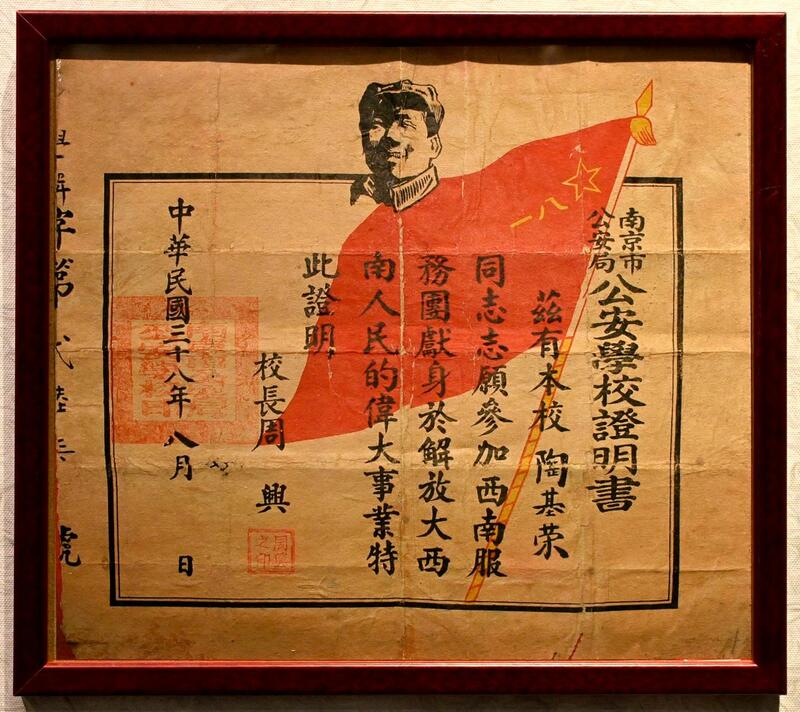 南京市
公安局
公安學校證明書
茲有本校 陶基荣
同志志願參加西南服
務團獻身於解放大西
南人民的偉大事業特
此證明
校長周 興
中華民國三十八年 八月 日
八一
周興之印
字第 號